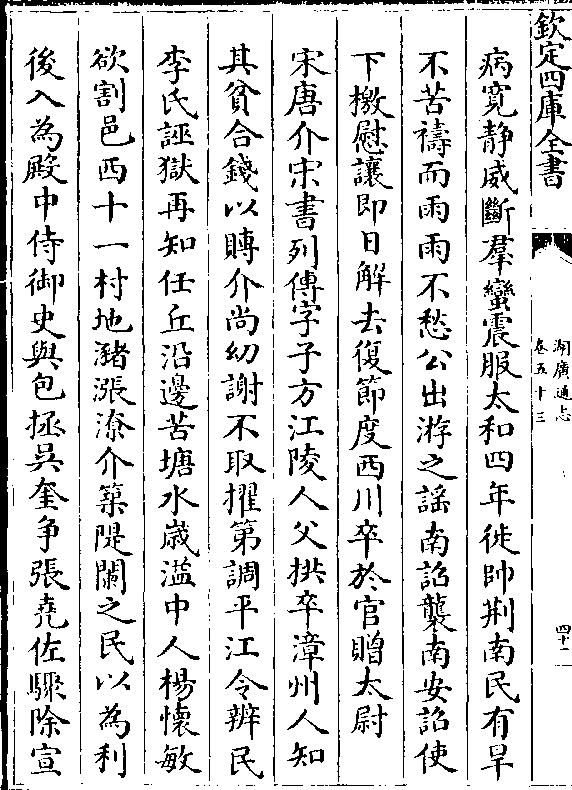 欽定四庫全書
湖廣通志
卷五十三
四十二
病寛静威斷羣蠻震服太和四年徙帥荆南民有旱
不苦禱而雨雨不愁公出游之謡南詔襲南安詔使
下檄慰讓即日解去復節度西川卒於官贈太尉
宋唐介宋書列傳字子方江陵人父拱卒漳州人知
其貧合錢以賻介尚幼謝不取擢第調平江令辨民
李氏誣獄再知任丘沿邊苦塘水歲溢中人楊懷敏
欲割邑西十一村地瀦漲潦介築隄闌之民以為利
後入為殿中侍御史與包拯吳奎争張堯佐驟除宣